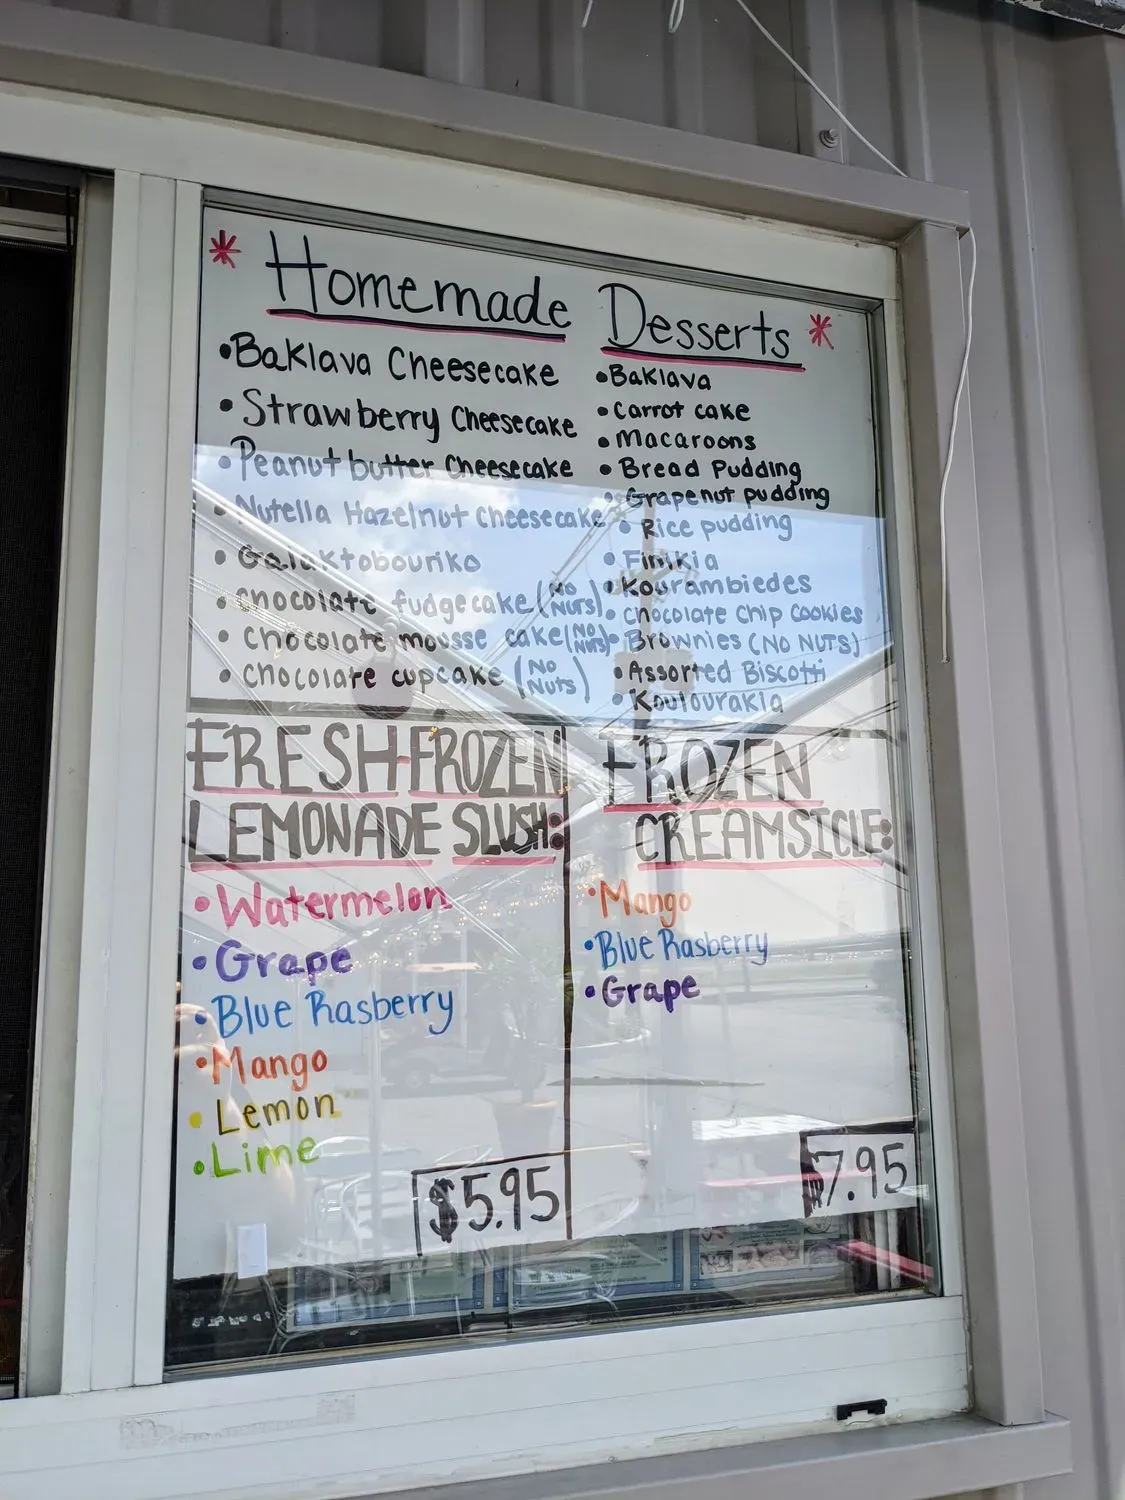 * Homemade Desserts *
•Baklava Cheesecake
•Strawberry Cheesecake
•Peanut butter Cheesecake
•Nutella Hazelnut cheesecake
•Galaktobouriko
•chocolate fudge cake (No Nuts)
•chocolate mousse cake (No Nuts)
•chocolate cupcake (No Nuts)
•Baklava
•Carrot cake
•Macaroons
•Bread Pudding
•Grapenut pudding
•Rice pudding
•Finikia
•Kourambiedes
•Chocolate Chip Cookies
•Brownies (No NUTS)
•Assorted Biscotti
•Koulourakia
FRESH-FROZEN
LEMONADE SLUSH:
•Watermelon
•Grape
•Blue Rasberry
•Mango
•Lemon
•Lime
$5.95
FROZEN
CREAMSICLE:
•Mango
•Blue Rasberry
•Grape
$7.95